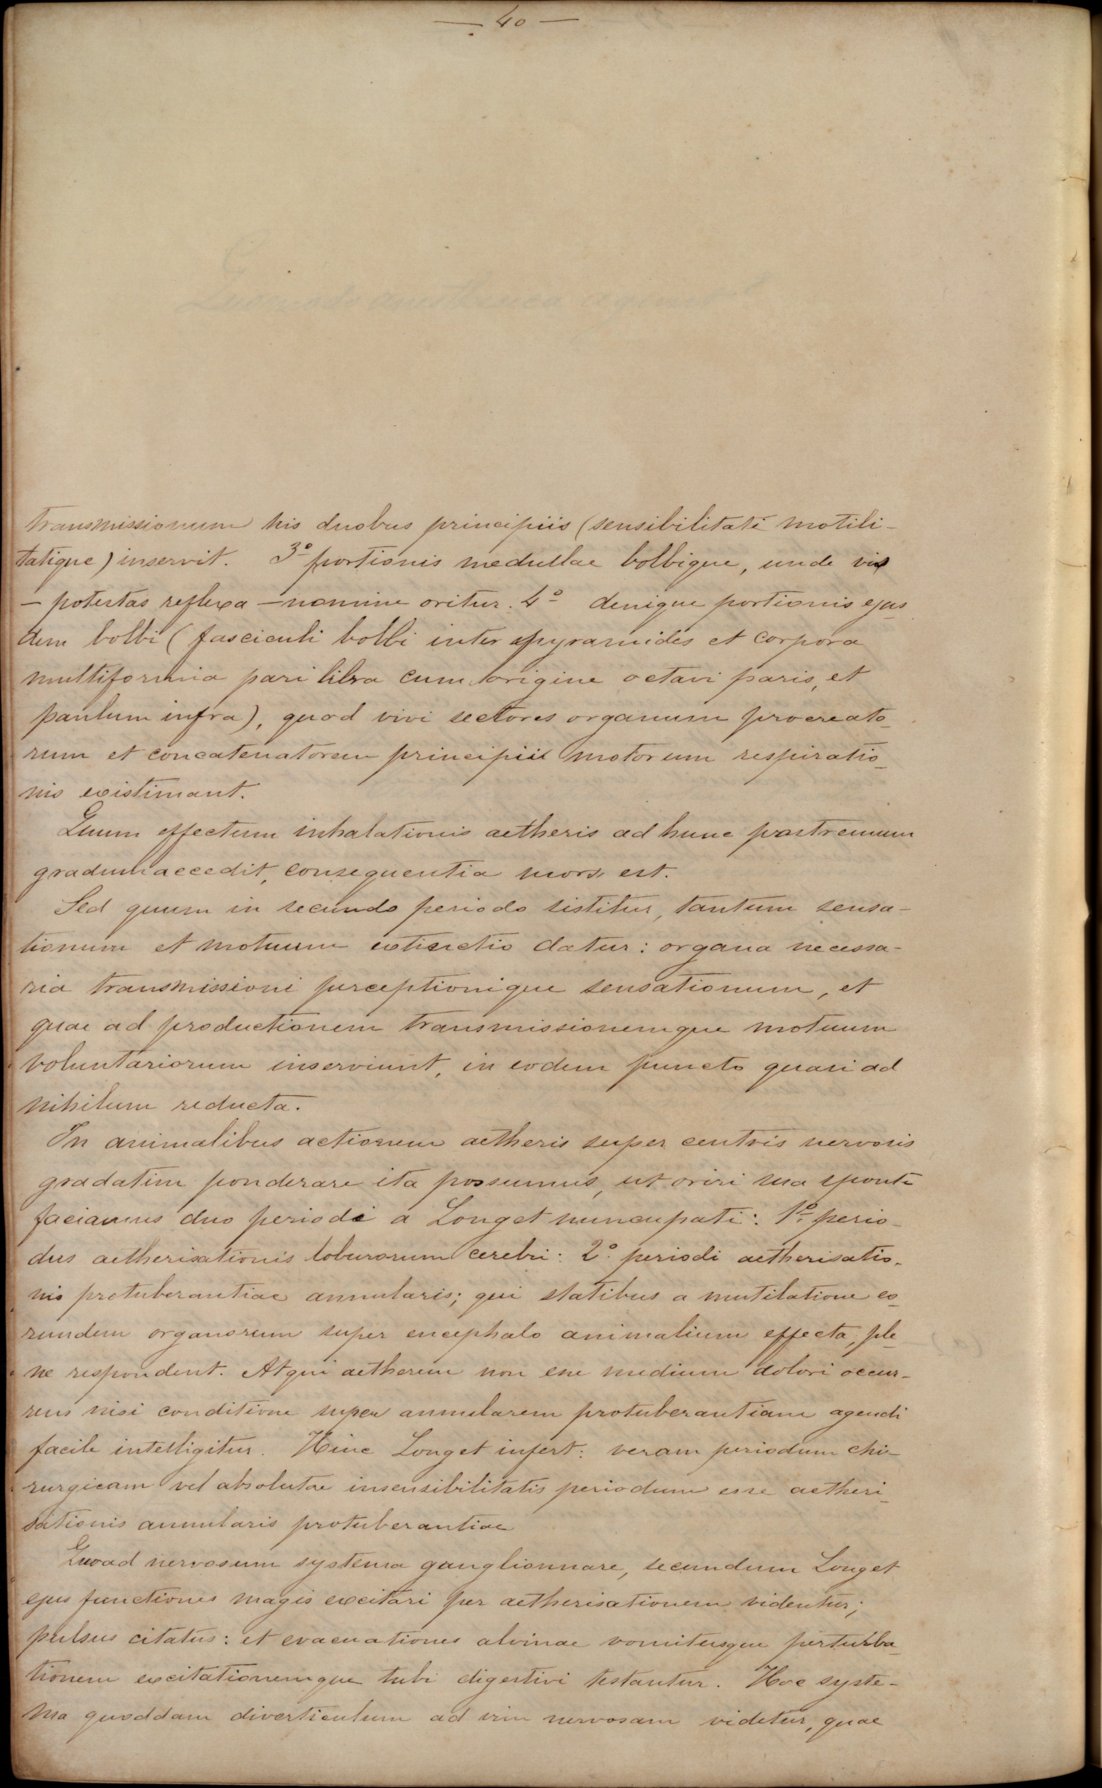 — 40 —
transmissionum his duobus principiis (sensibilitati motili-
tatique) inservit. 3º portionis medullae bolbique, unde vis
— potestas reflexa — nomine oritur. 4º denique portionis ejus-
dem bolbi (fasciculi bolbi inter pyramides et corpora
multiformia pari libra cum origine octavi paris, et
paulum infra), quod vivi sectores organum procreato-
rum et concatenatorem principii motorum respiratio-
nis existimant.
Quum effectum inhalationis aetheris ad hunc postremum
gradum accedit, consequentia mors est.
Sed quum in secundo periodo sistitur, tantum sensa-
tionum et motuum extinctio datur: organa necessa-
ria transmissioni perceptionique sensationum, et
quae ad productionem transmissionemque motuum
voluntariorum inserviunt, in eodem puncto quasi ad
nihilum reducta.
In animalibus actionem aetheris super centris nervosis
gradatim ponderare ita possumus, ut oriri sua sponte
faciamus duo periodi a Longet nuncupati: 1º perio-
dus aetherisationis loburorum cerebri: 2º periodi aetherisatio-
nis protuberantiae annularis; qui statibus a mutilatione eo-
rumdem organorum super encephalo animalium effecta, ple-
ne respondent. Atqui aetherem non esse medium dolori occur-
rens nisi conditione super annularem protuberantiam agendi
facile intelligitur. Hinc Longet infert: veram periodum chi-
rurgicam vel absolutae insensibilitatis periodum esse aetheri-
sationis annularis protuberantiae
Quoad nervosum systema ganglionnare, secundum Longet
ejus functiones magis excitari per aetherisationem videntur;
pulsus citatus: et evacuationes alvinae vomitusque perturba-
tionem excitationemque tubi digestivi testantur. Hoc syste-
ma quoddam diverticulum ad vim nervosam videtur, quae